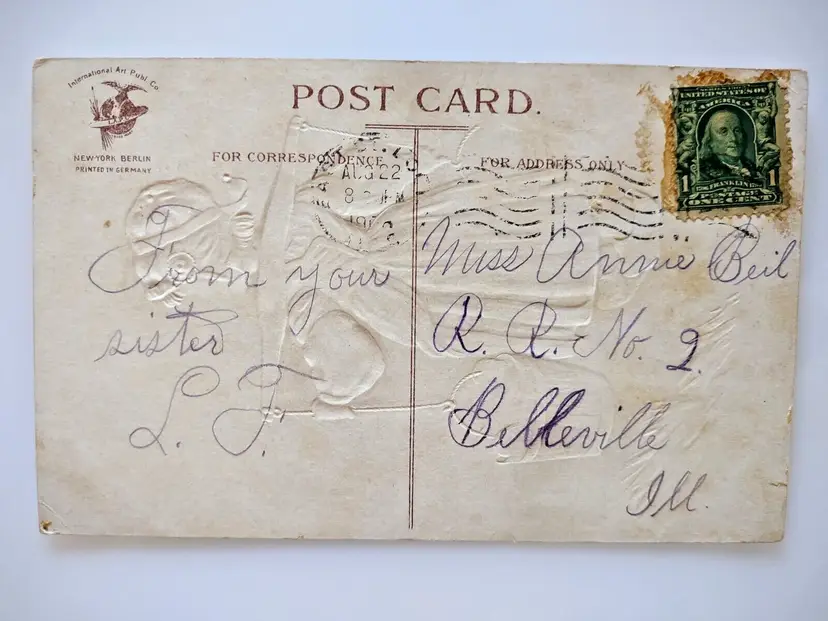 International Art Publ. Co.
NEW-YORK BERLIN
PRINTED IN GERMANY
POST CARD.
FOR CORRESPONDENCE
FOR ADDRESS ONLY
AUG 22
8
SERIES 1902
UNITED STATES OF
AMERICA
1 FRANKLIN 1
POSTAGE
ONE CENT
From your
sister
L. F.
Miss Annie Beil
R. R. No. 2.
Belleville
Ill.